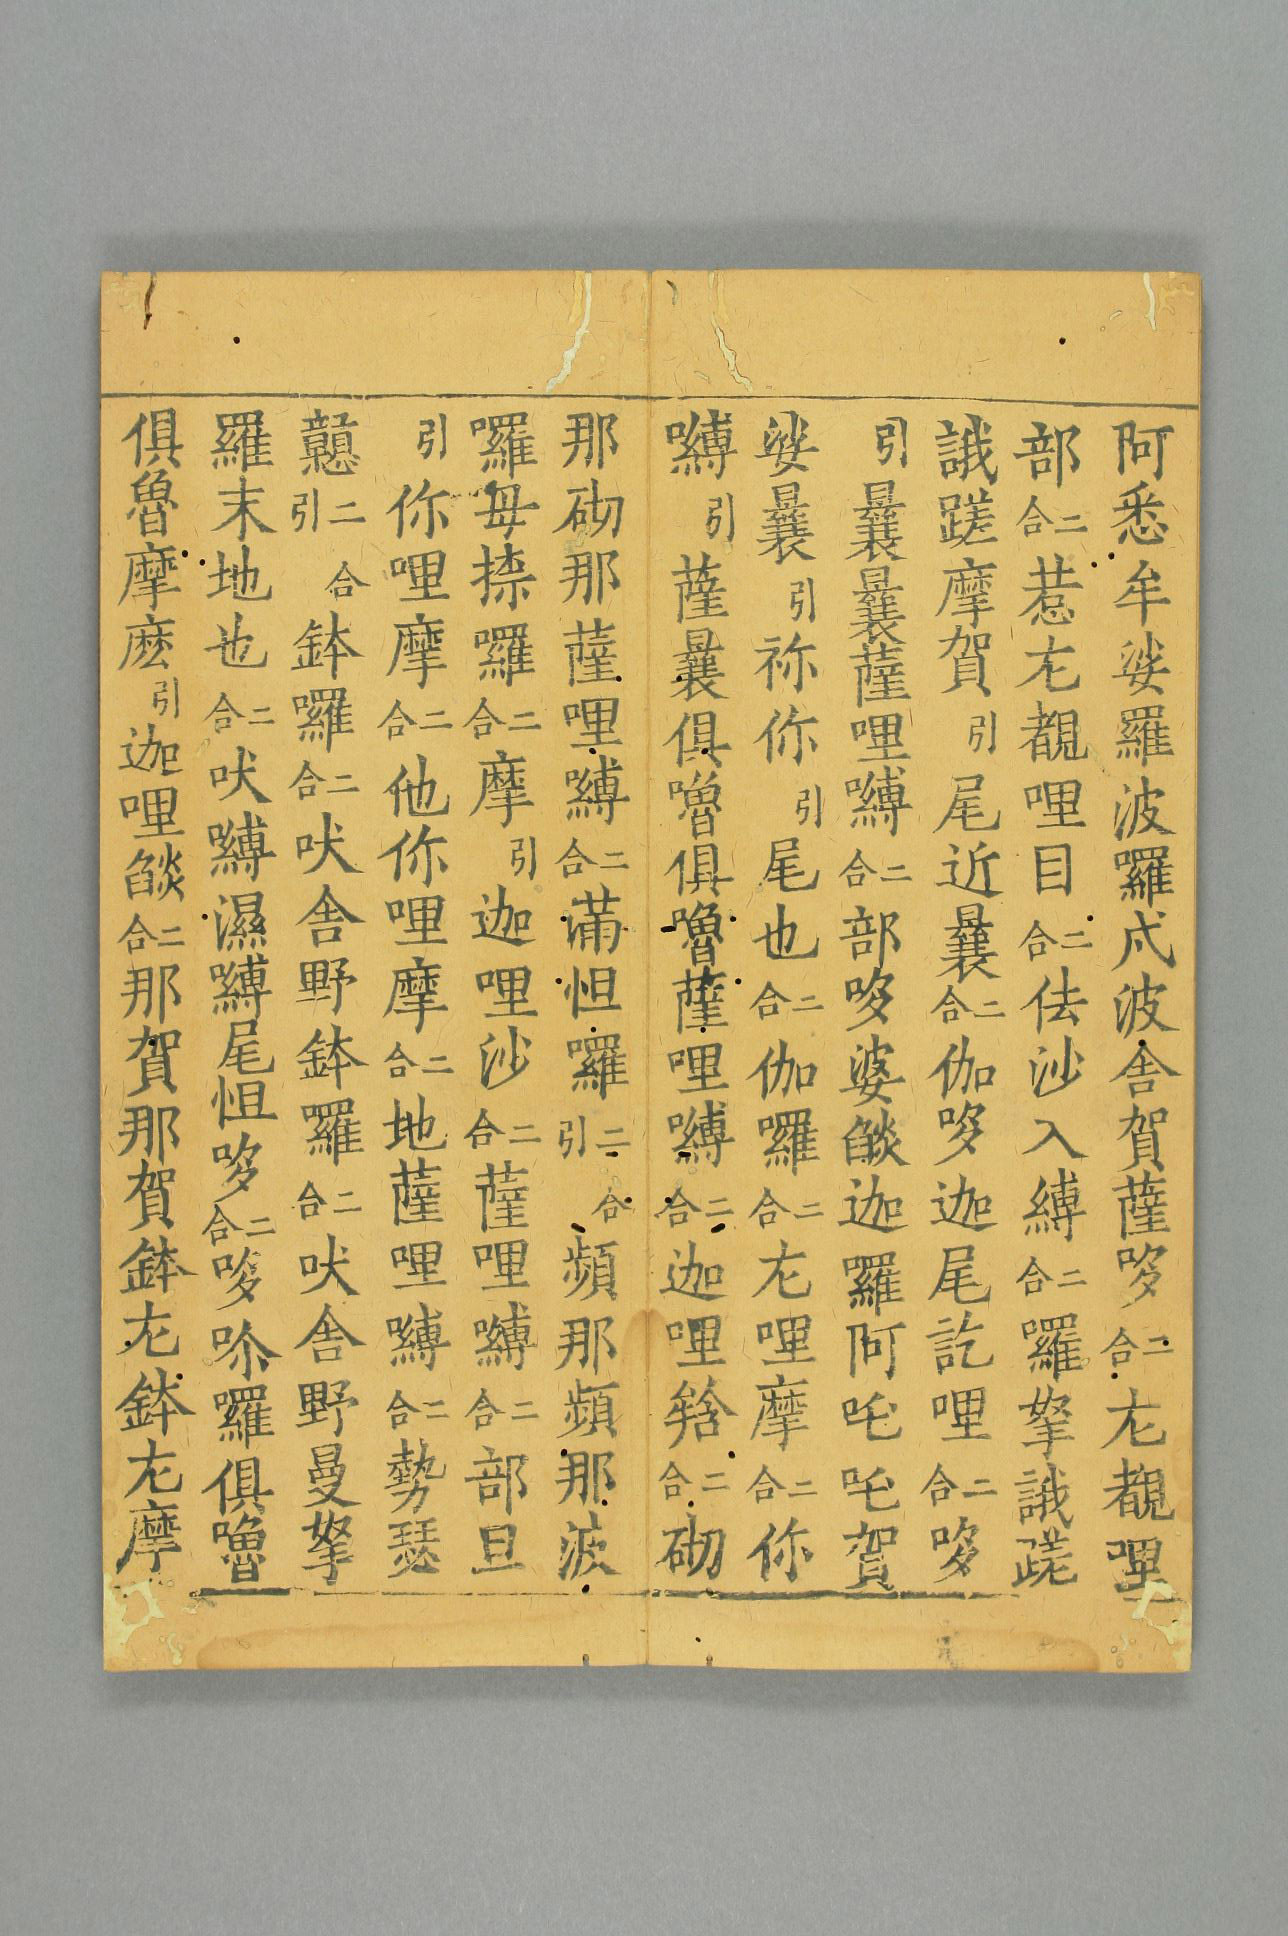 阿悉牟娑羅波囉戍波舍賀薩哆二合尢覩哩
部二合惹尢覩哩目二合佉沙入縛二合羅拏誐蹉
誐蹉摩賀引尾近曩二合伽哆迦尾訖哩二合哆
引曩曩薩哩嚩二合部哆婆燄迦羅阿吒吒賀
娑曩引祢你引尾也二合伽囉二合尢哩摩二合你
嚩引薩曩俱嚕俱嚕薩哩嚩二合迦哩𦚾二合砌
那砌那薩哩嚩二合滿怛囉二合引頻那頻那波
囉毋捺囉二合摩引迦哩沙二合薩哩嚩二合部旦
引你哩摩二合他你哩摩二合地薩哩嚩二合勢瑟
戇二合引鉢囉二合吠舍野鉢囉二合吠舍野曼拏
羅末地也二合吠嚩濕嚩尾怛哆二合哆尒囉俱嚕
俱魯摩麽引迦哩燄二合那賀那賀鉢尢鉢尢摩